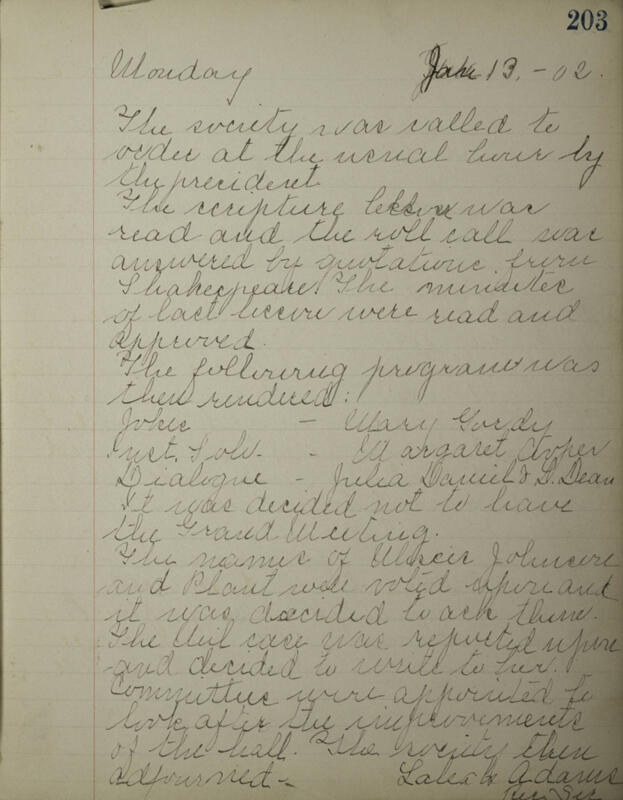 203
Monday Jan 13. - 02.
The society was called to
order at the usual hour by
the president
The scripture lesson was
read and the roll call was
answered by quotations from
Shakespeare. The minutes
of last lesson were read and
approved.
The following program was
then rendered:
Jokes - Mary Gordy
Inst. Solo. - Margaret Cooper
Dialogue - Julia Daniel & L. Dean
It was decided not to have
the Grand Meeting.
The names of Misses Johnson
and Plant were voted upon and
it was decided to ask them.
The case was reported upon
and decided to write to her.
Committees were appointed to
look after the improvements
of the hall. The society then
adjourned - Adams